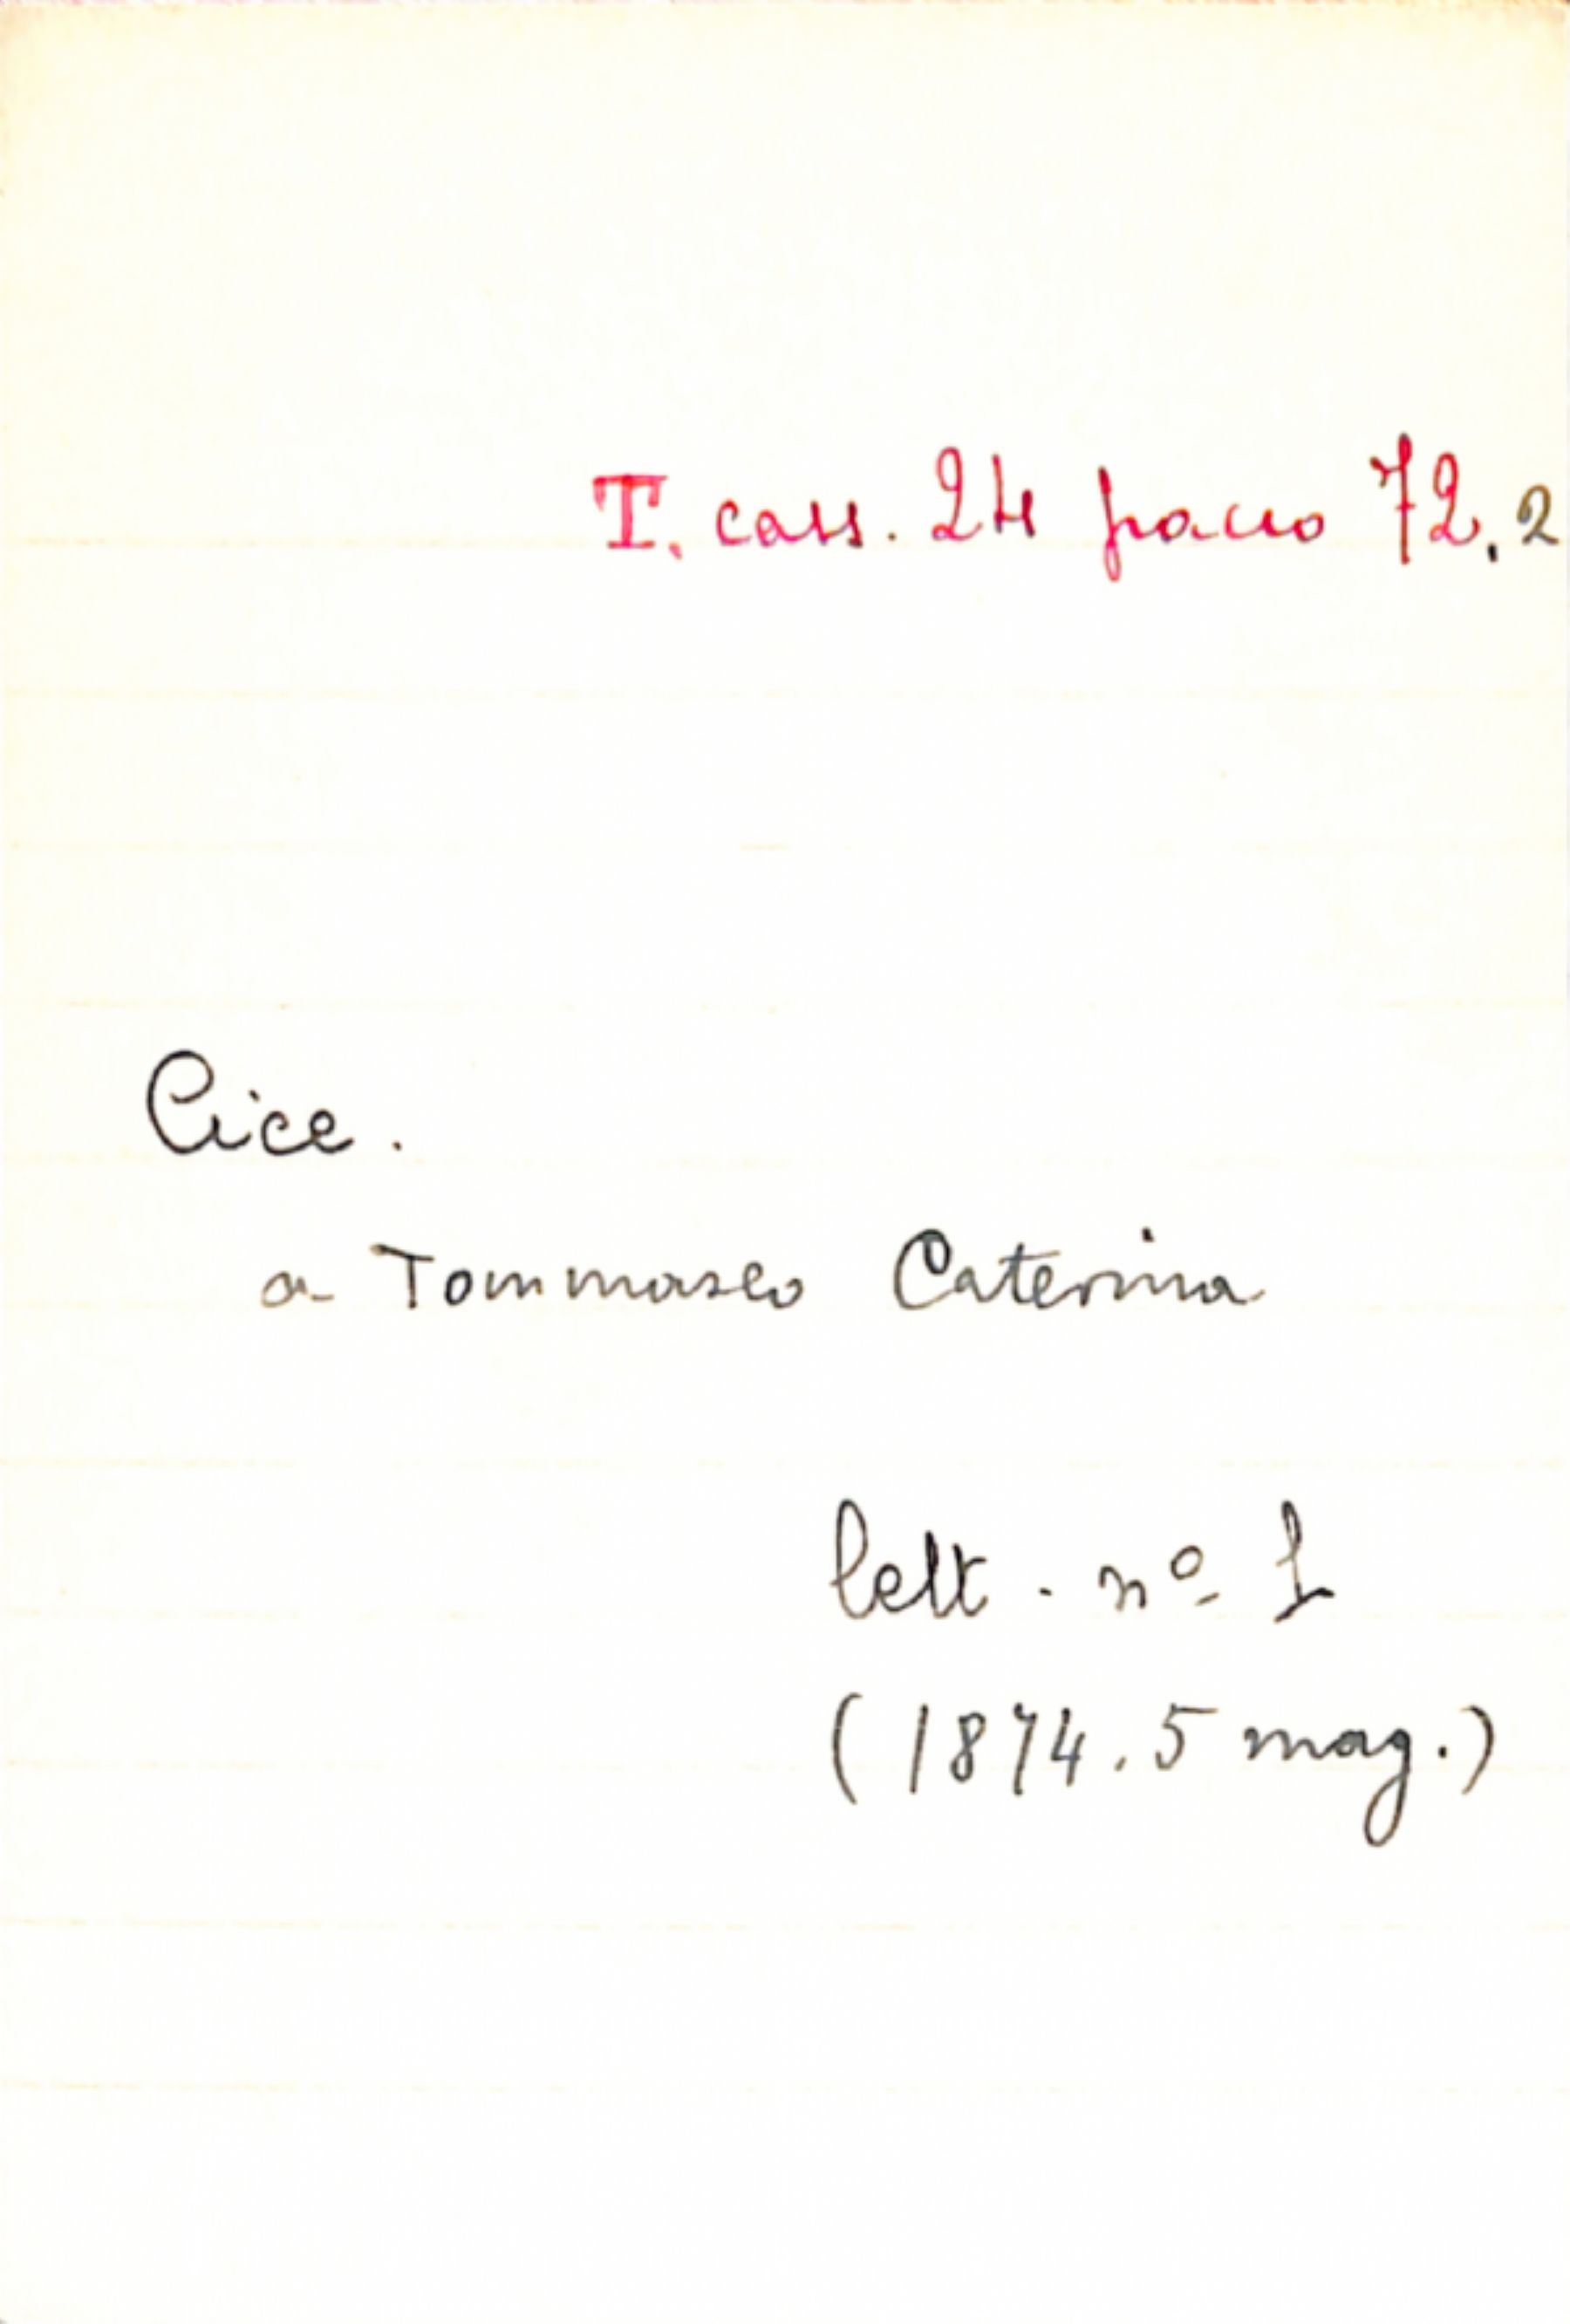 T. cass. 24 pacco 72.2
Cice.
a Tommaseo Caterina
lett. nº 1
(1874. 5 mag.)